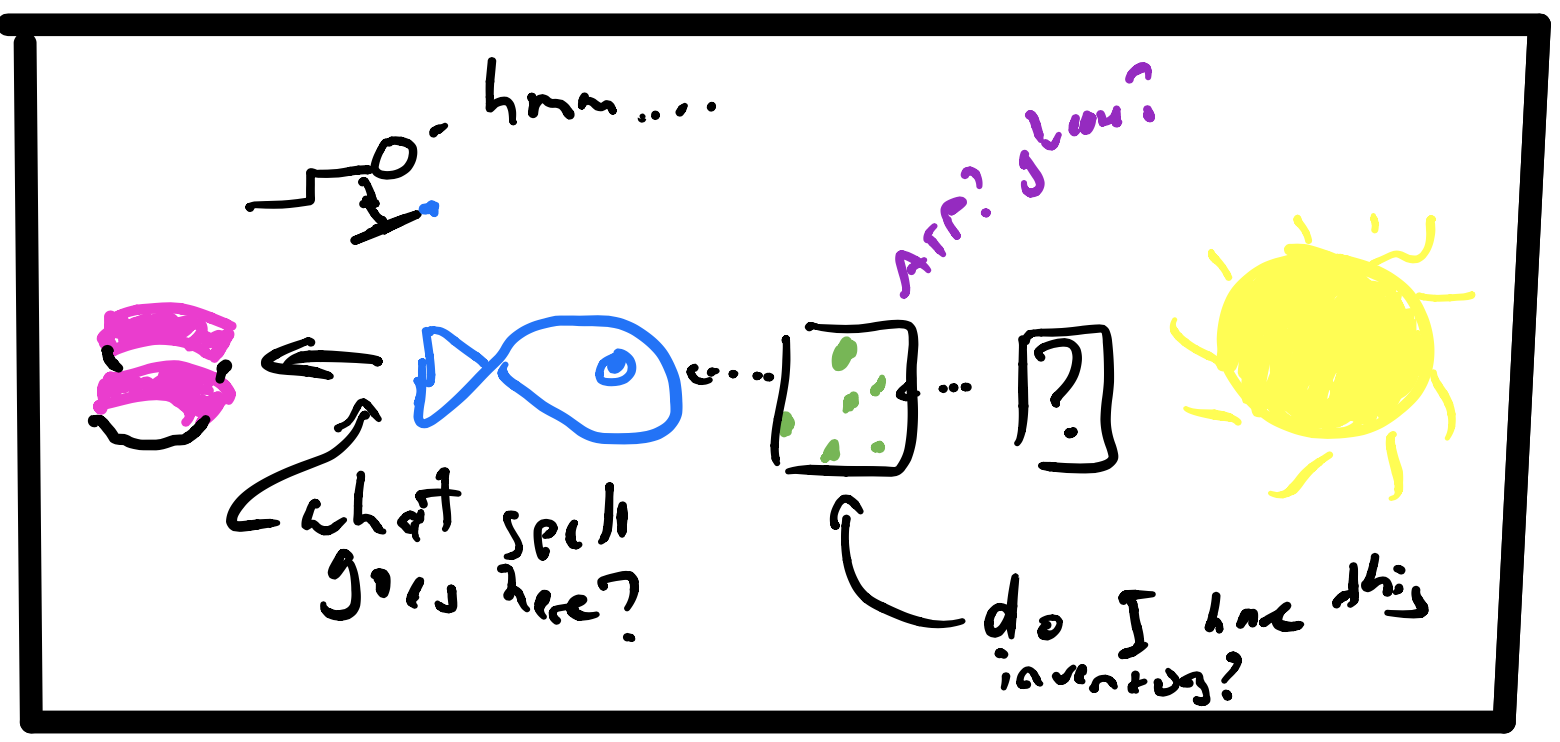 hmm....
ATP? glow?
?
what spell
goes here?
do I have this
inventory?